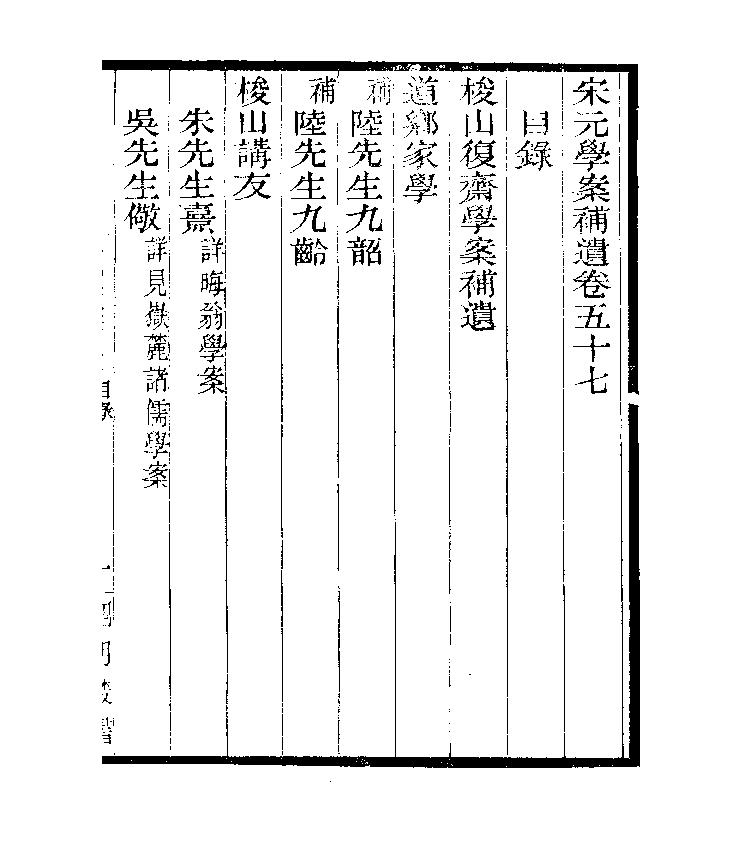 宋元學案補遺卷五十七
目錄
梭山復齋學案補遺
道鄉家學
補陸先生九韶
補陸先生九齡
梭山講友
朱先生熹詳晦翁學案
吳先生儆詳見嶽麓諸儒學案
目錄